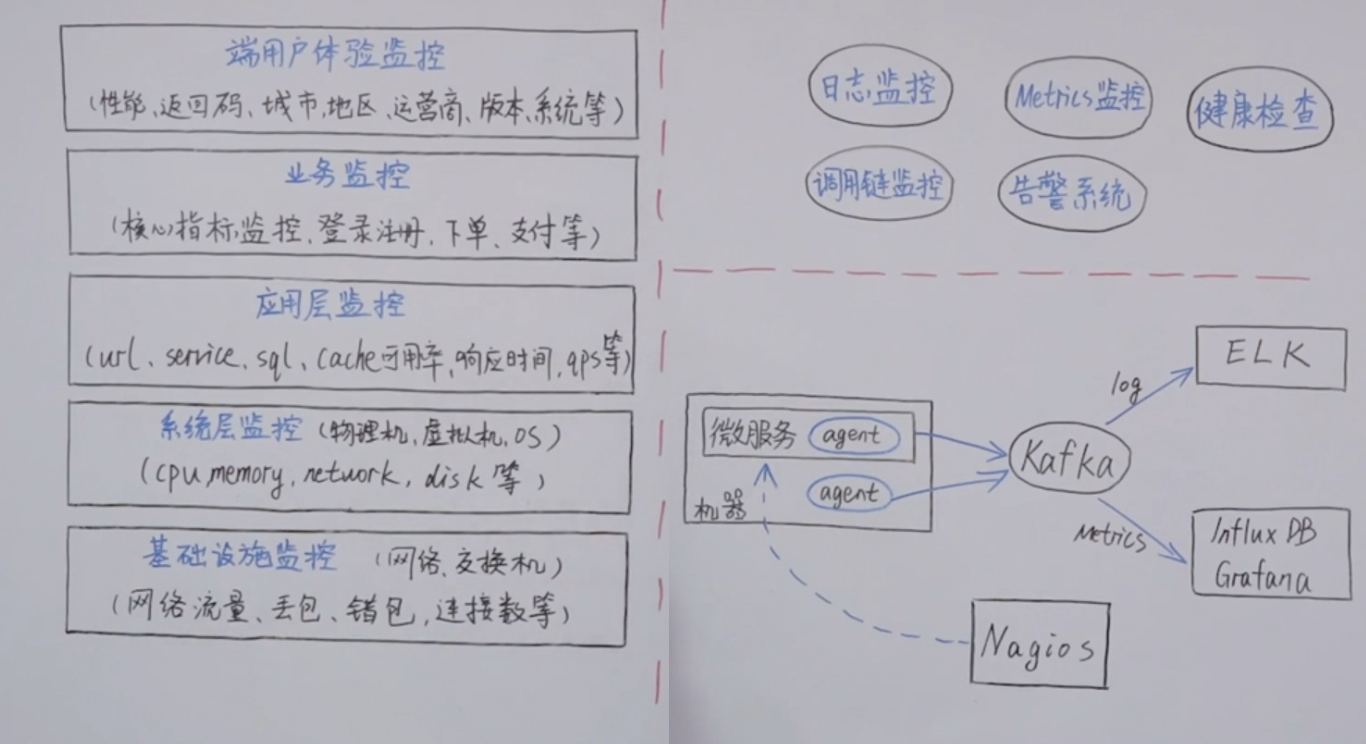 端用户体验监控
(性能、返回码、城市,地区、运营商、版本,系统等)
业务监控
(核心指标监控、登录注册、下单、支付等)
应用层监控
(url、service、sql、cache可用率,响应时间,qps等)
系统层监控 (物理机,虚拟机,OS)
(cpu,memory,network,disk等)
基础设施监控 (网络、交换机)
(网络流量、丢包、错包,连接数等)
日志监控
Metrics监控
健康检查
调用链监控
告警系统
微服务
agent
agent
机器
Kafka
log
ELK
Metrics
Influx DB
Grafana
Nagios